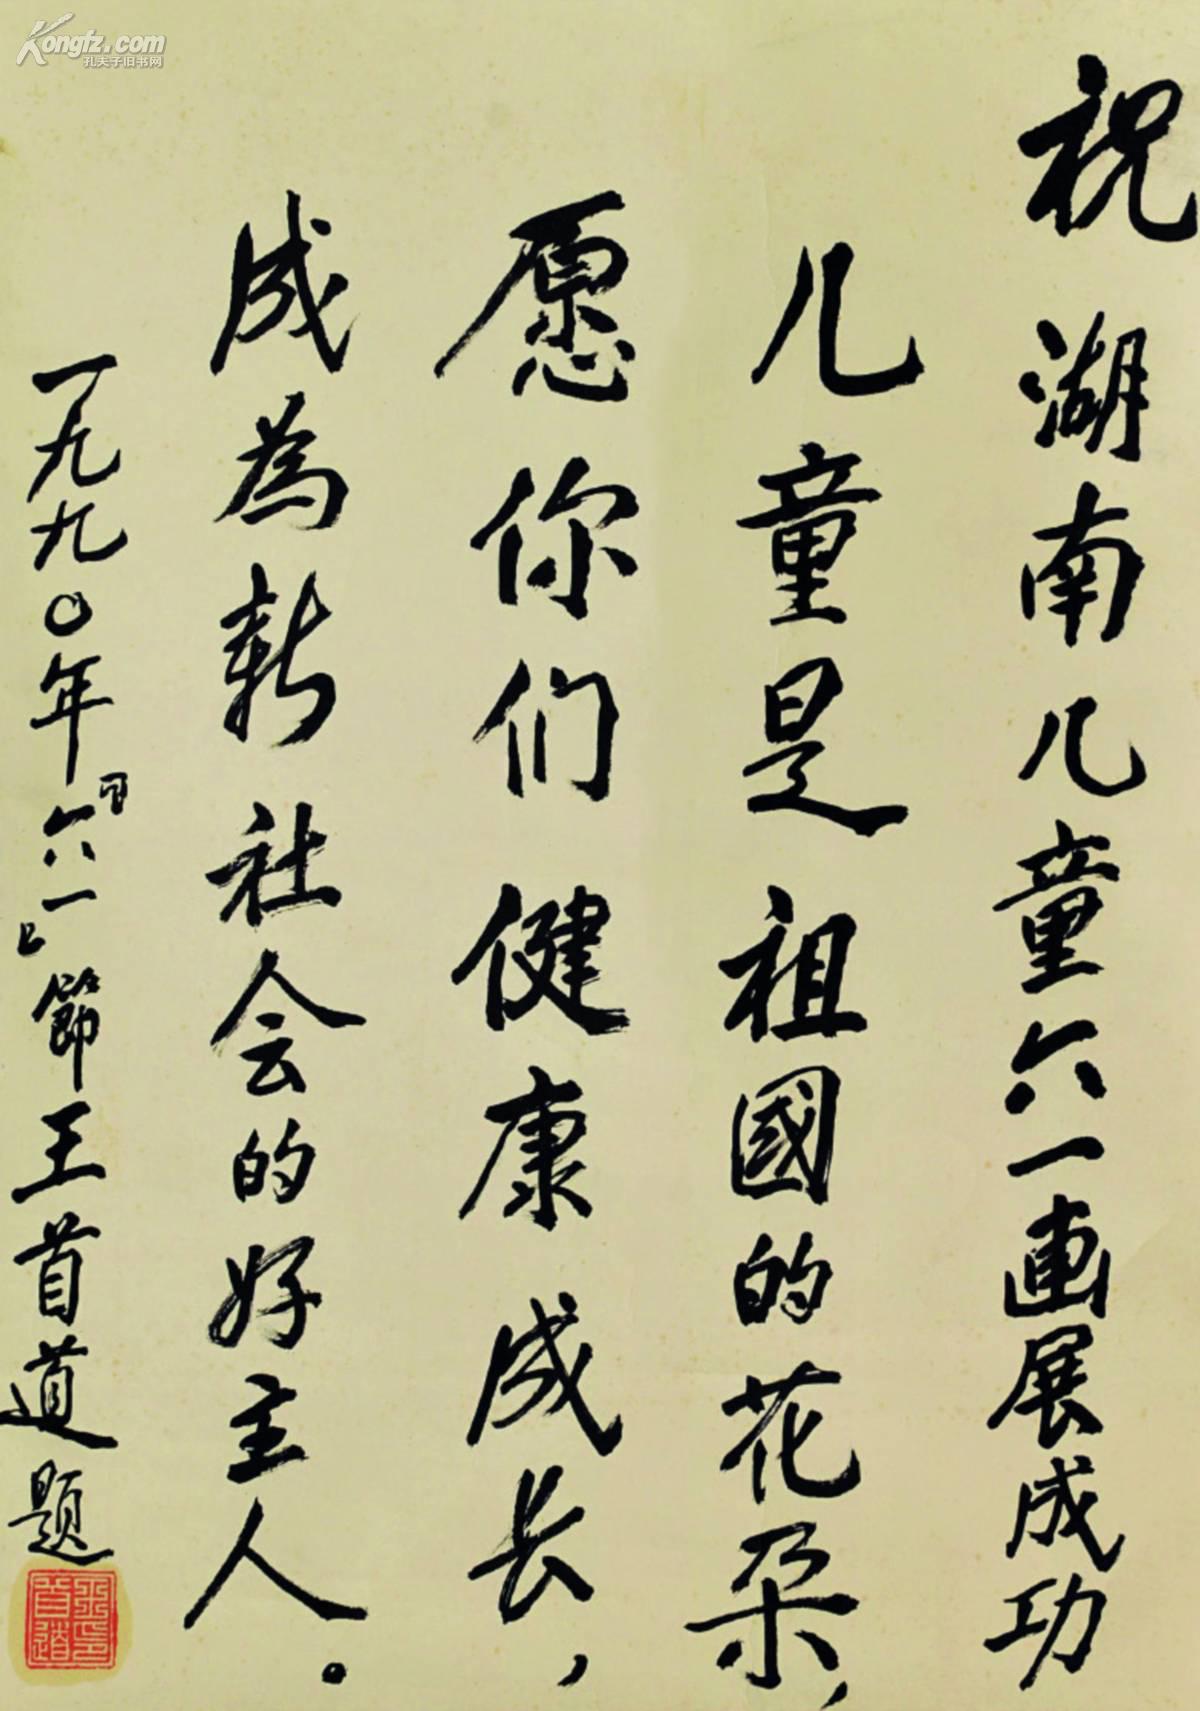 Kongfz.com
孔夫子旧书网
祝湖南儿童六一画展成功
儿童是祖國的花朵,
愿你们健康成长,
成为新社会的好主人。
一九九〇年『六一』節王首道题
王首道印